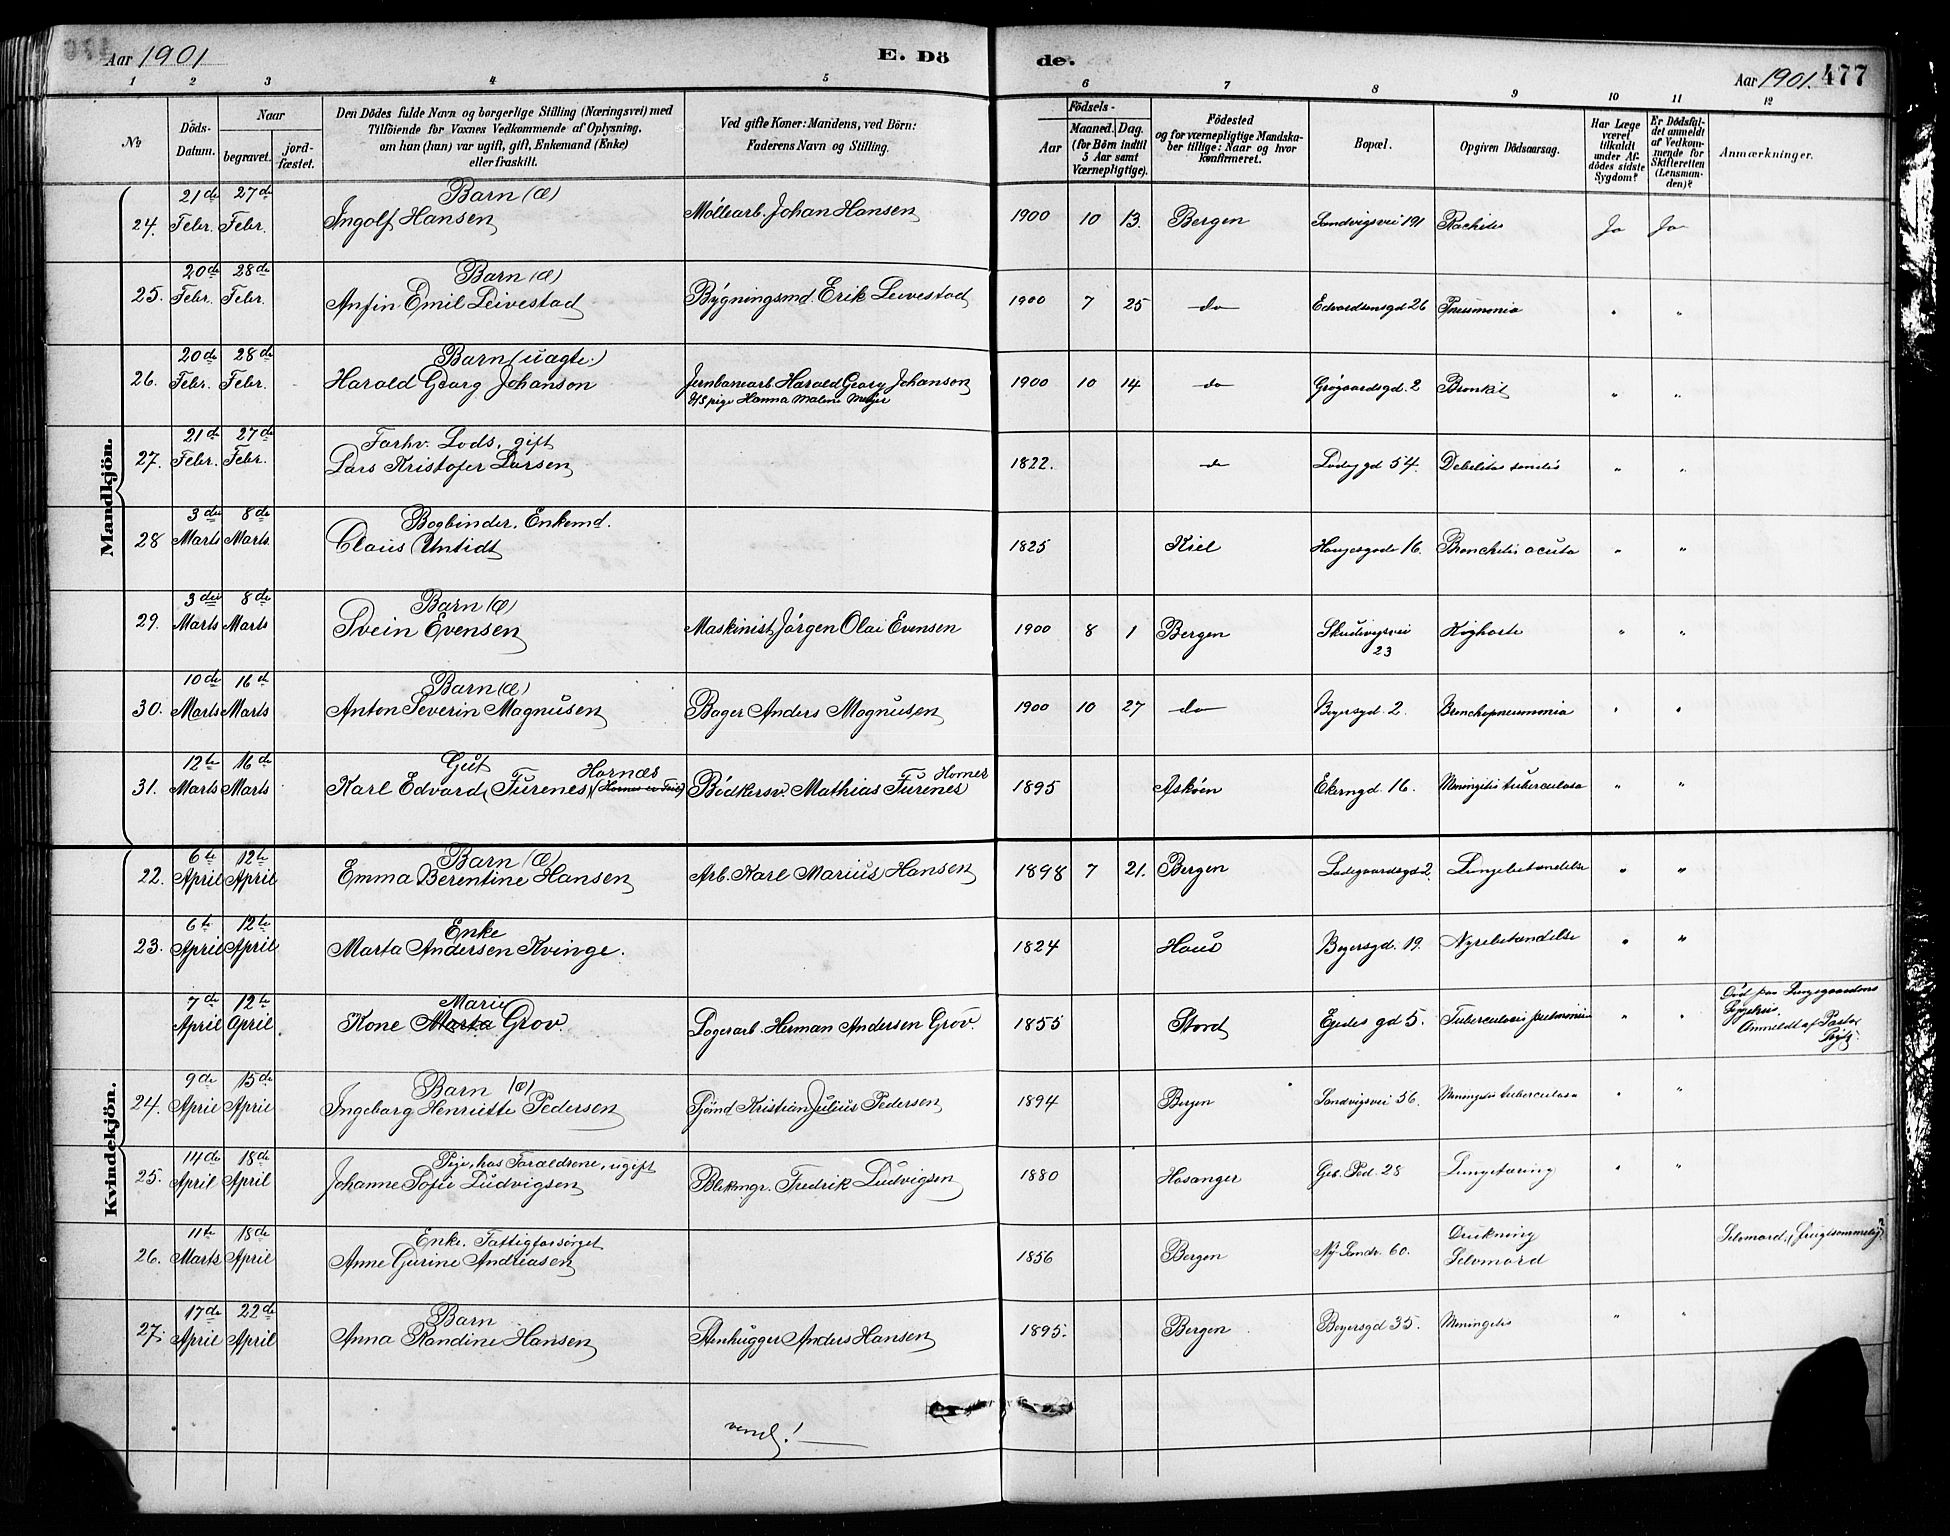 Aar 1901
E. Dö
de.
Aar 1901.
477
1 2 3 4 5 6 7 8 9 10 11 12
No
Döds-
Datum.
Naar
begravet.
jord-
fæstet.
Den Dödes fulde Navn og borgerlige Stilling (Næringsvei) med
Tilföiende for Voxnes Vedkommende af Oplysning,
om han (hun) var ugift, gift, Enkemand (Enke)
eller fraskilt.
Ved gifte Koner: Mandens, ved Börn:
Faderens Navn og Stilling.
Födsels-
Aar
Maaned. Dag.
(for Börn indtil
5 Aar samt
Værnepligtige).
Födested
og for værnepligtige Mandska-
ber tillige: Naar og hvor
konfirmeret.
Bopæl.
Opgiven Dödsaarsag.
Har Læge
været
tilkaldt
under Af-
dödes sidste
Sygdom?
Er Dödsfal-
det anmeldt
af Vedkom-
mende for
Skifteretten
(Lensman-
den)?
Anmærkninger.
Mandkjön.
21de 27de Barn (Æ)
24. Febr. Febr. Ingolf Hansen Möllearb. Johan Hansen 1900 10 13. Bergen Sandvigsvei 191 Rachitis Ja Ja
20de 28de Barn (Æ)
25. Febr. Febr. Anfin Emil Leivestad Bygningsmd Erik Leivestad 1900 7 25 do Edvardsensgd 26 Pneumonia " "
20de 28de Barn (uægte.)
26. Febr. Febr. Harald Georg Johanson Jernbanearb. Harald Georg Johanson 1900 10 14 do Grögaardsgd. 2 Bronkit " "
pige Hanna Malene
21de 27de Forhv. Lods, gift
27. Febr. Febr. Lars Kristofer Larsen 1822. do 54. Debilitas senilis " "
3die 8de Bogbinder, Enkemd.
28 Marts Marts. Claus Untidt 1825 Kiel 16. Bronchitis acuta " "
3die 8de Barn (Æ)
29. Marts Marts Svein Evensen Maskinist Jörgen Olai Evensen 1900 8 1 Bergen Skudevigsvei Kighoste " "
23
10de 16de Barn (Æ)
30. Marts Marts Anton Severin Magnusen Bager Anders Magnusen 1900 10 27 do Beyersgd. 2. Bronchopneumonia " "
12te 16de Gut Hornæs Hornes
31. Marts Marts Karl Edvard Furenes Bödkersv. Mathias Furenes 1895 Asköen Ekerngd. 16. Meningitis tuberculosa " "
Kvindekjön.
6te 12te Barn (Æ)
22. April April Emma Berentine Hansen Arb. Karl Marius Hansen 1898 7 21. Bergen Ladegaardsgd 2. Lungebetændelse " "
6te 12te Enke
23. April April Marta Andersen Kvinge. 1824 Haus Beyersgd. 19. Nyrebetændelse " "
7de 12te Marie
April April. Kone Marta Grov. Lagerarb. Herman Andersen Grov. 1855 Stord Egedes gd 5. Tuberculosis pulmonum " "
Död paa Lungegaardens
Sygehus.
Anmeldt af Pastor
9de 15de Barn (Æ)
24. April April Ingeborg Henriette Pedersen Sjömd Kristian Julius Pedersen 1894 Bergen Sandvigsvei 56. Meningitis tuberculosa " "
14de 18de Pige, hos Forældrene, ugift
25. April April Johanne Sofie Ludvigsen Blikmgr. Fredrik Ludvigsen 1880 Hosanger 28 Lungetæring " "
11te 18de Enke. Fattigforsörget Drukning
26. Marts April Anne Gurine Andreasen 1856 Bergen Ny Sandv. 60. Selvmord Selvmord.
17de 22de Barn
27. April April Anna Randine Hansen Stenhugger Anders Hansen 1895. Bergen Beyersgd 35. Meningitis " "
vend!